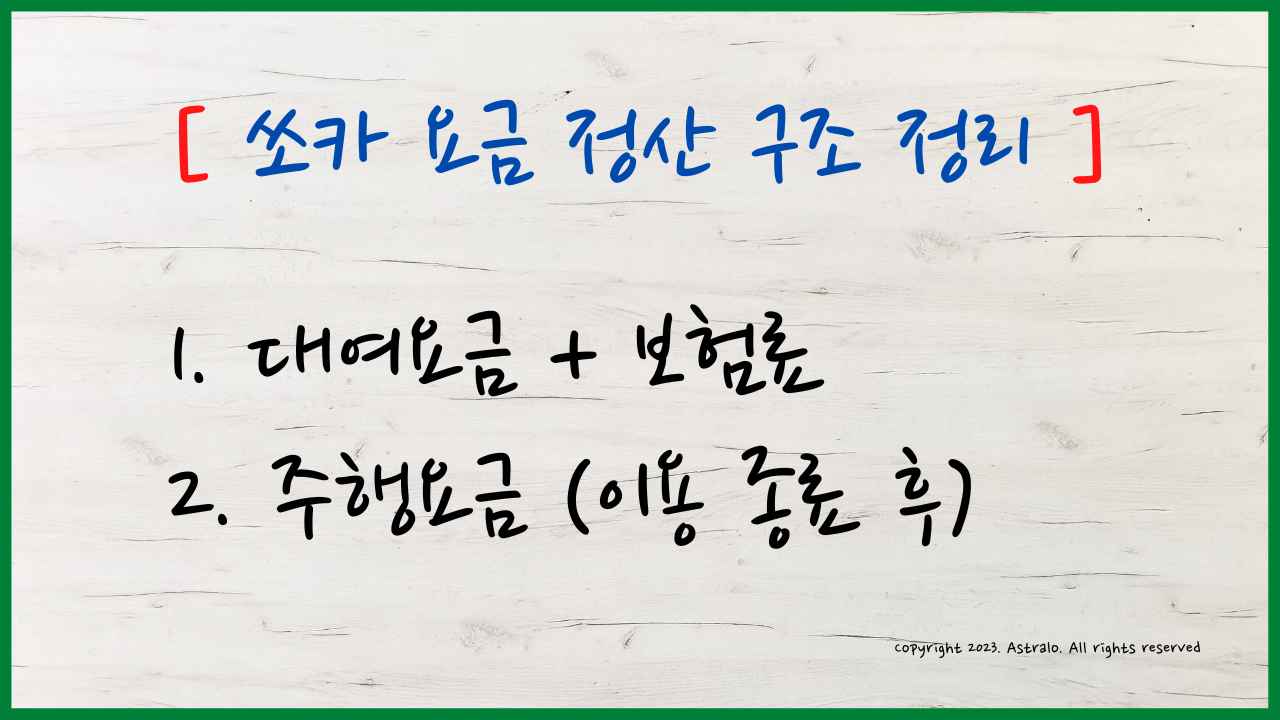 [ 쏘카 요금 정산 구조 정리 ]
1. 대여요금 + 보험료
2. 주행요금 (이용 종료 후)
copyright 2023. Astralo. All rights reserved